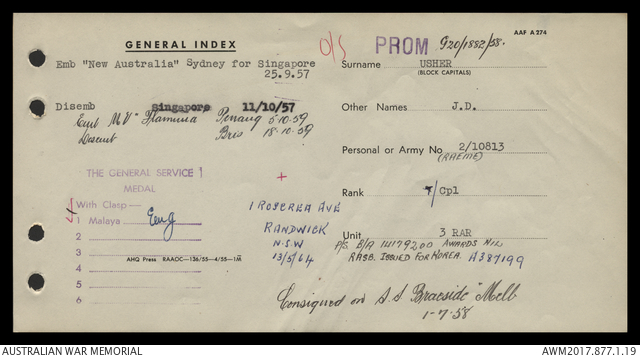 AAF A 274
GENERAL INDEX
O/S
PROM
G20/1882/58.
Emb "New Australia" Sydney for Singapore
25.9.57
Surname USHER
(BLOCK CAPITALS)
Disemb Singapore 11/10/57
Emb M.V "Flaminia Penang 5-10-59
Bris 18.10.59
Other Names J.D.
Personal or Army No 2/10813
(RAEME)
THE GENERAL SERVICE
MEDAL
With Clasp—
1 Malaya Eng
2
3
4
5
6
+
Rank T/Cpl
1 ROSCREA AVE
RANDWICK
N.S.W
13/5/64
Unit 3 RAR
P/S. B/A 14179200 AWARDS NIL
RASB. ISSUED FOR KOREA. A387199
AHQ Press RAAOC—136/55—4/55—1M
Consigned on S.S "Braeside" Melb
1-7-58
AUSTRALIAN WAR MEMORIAL
AWM2017.877.1.19